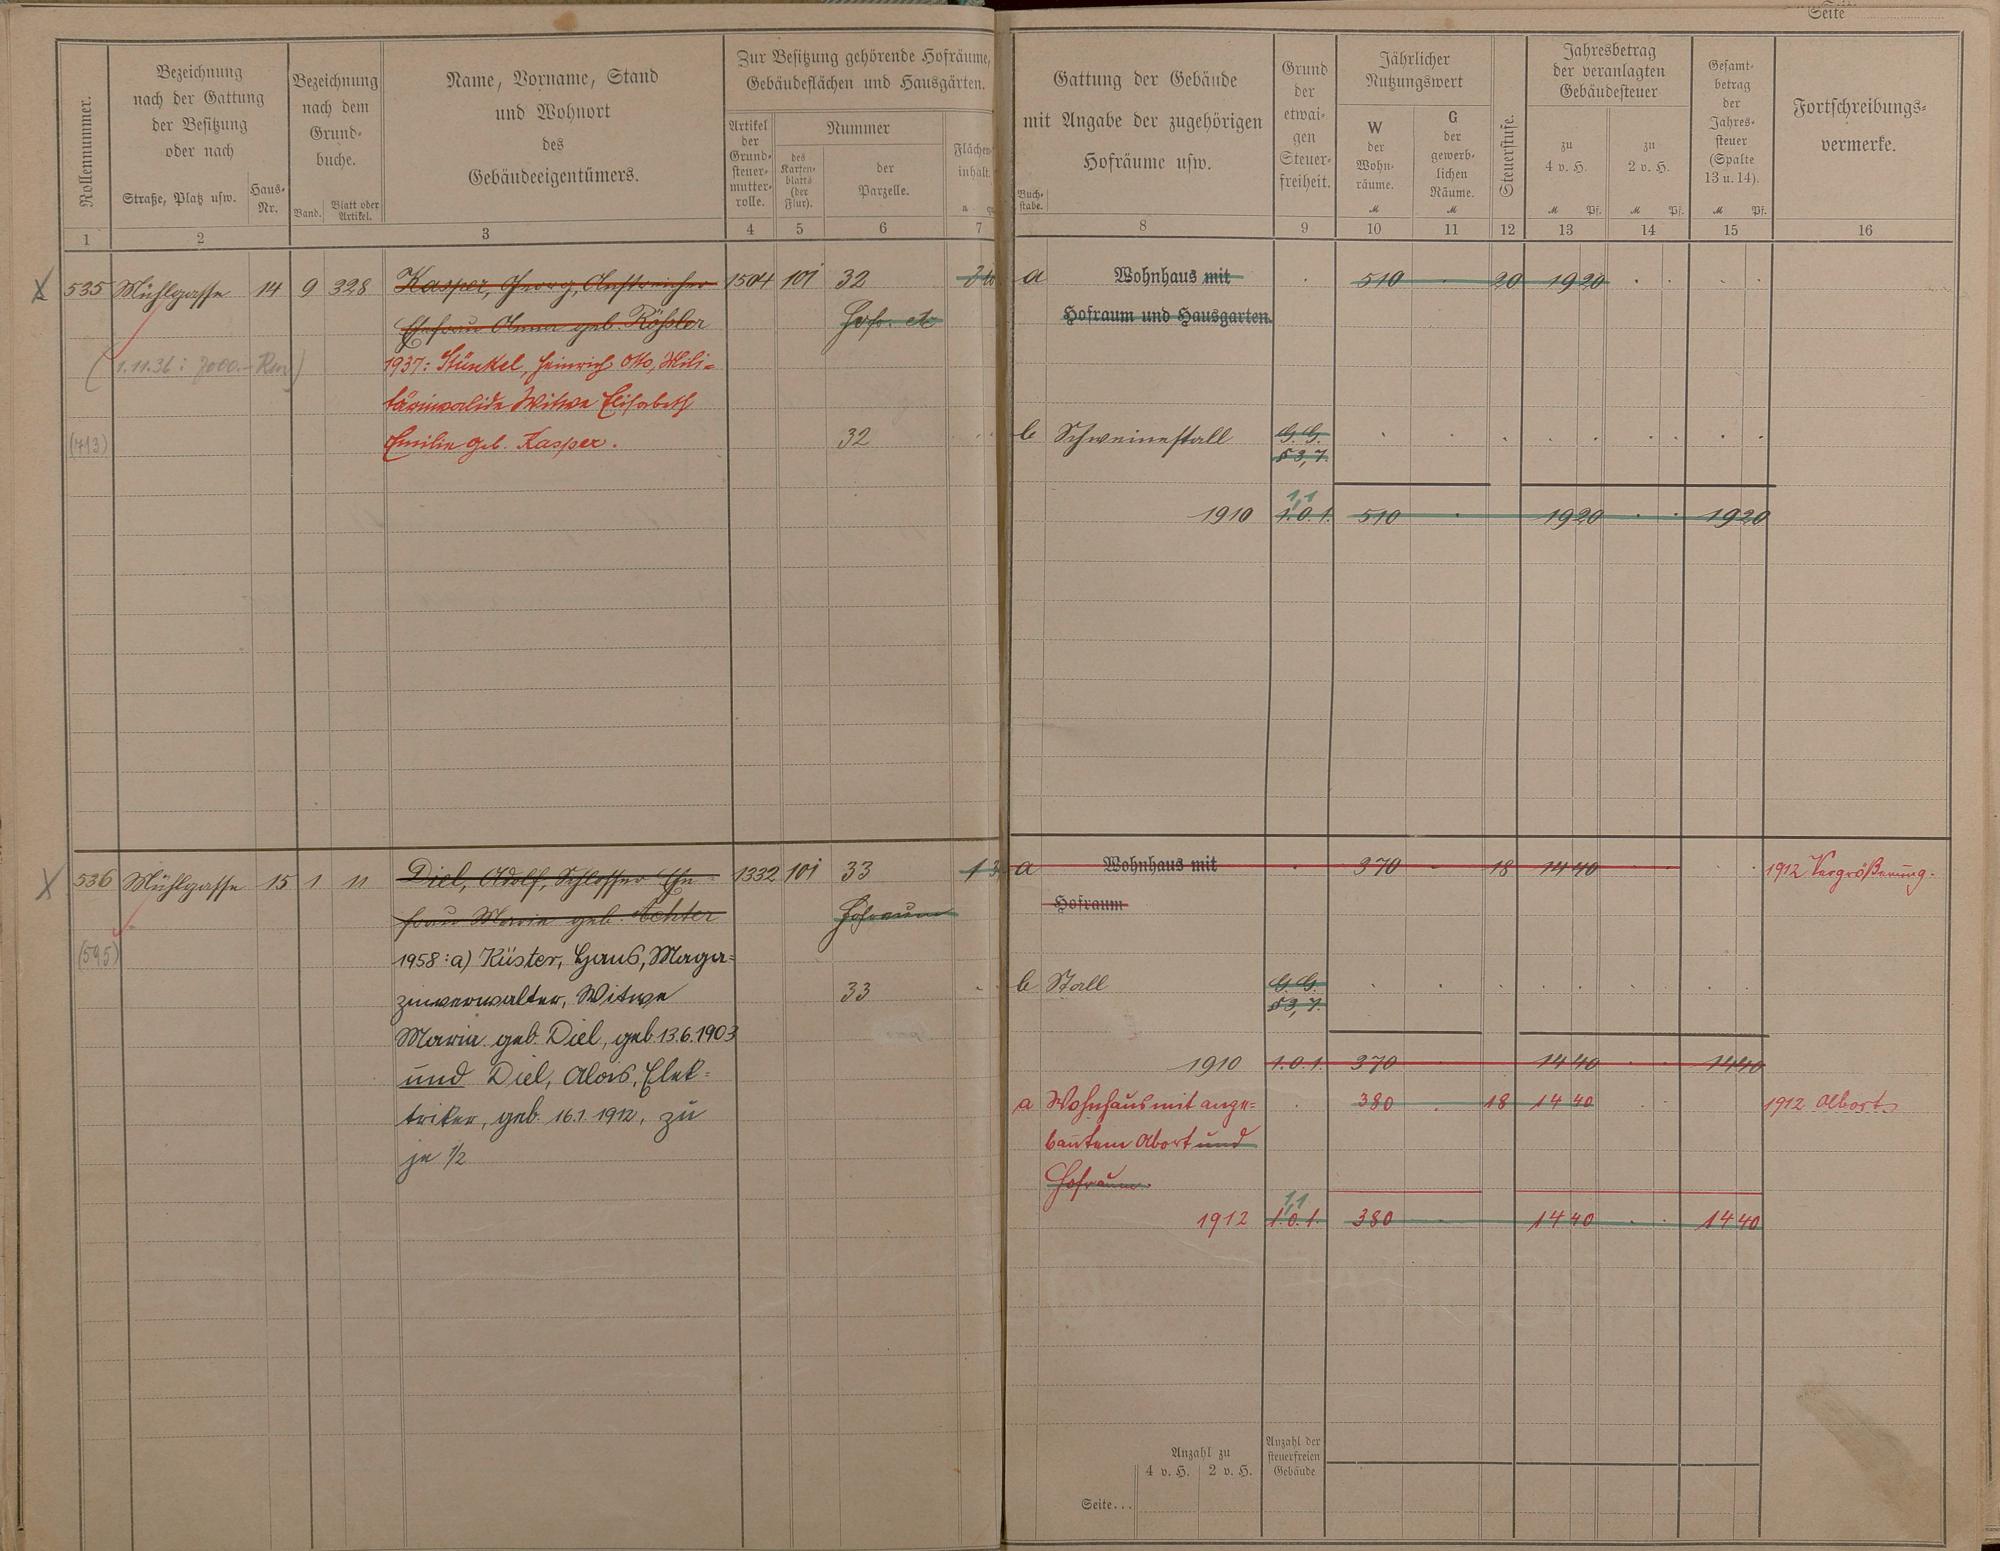 Seite
Rollennummer.
Bezeichnung
nach der Gattung
der Besitzung
oder nach
Straße, Platz usw.
Haus-
Nr.
Bezeichnung
nach dem
Grund-
buche.
Band.
Blatt oder
Artikel.
Name, Vorname, Stand
und Wohnort
des
Gebäudeeigentümers.
Zur Besitzung gehörende Hofräume,
Gebäudeflächen und Hausgärten.
Artikel
der
Grund-
steuer-
mutter-
rolle.
Nummer
des
Karten-
blatts
(der
Flur).
der
Parzelle.
Flächen-
inhalt.
a
Buch-
stabe.
Gattung der Gebäude
mit Angabe der zugehörigen
Hofräume usw.
Grund
der
etwai-
gen
Steuer-
freiheit.
Jährlicher
Nutzungswert
W
der
Wohn-
räume.
M
G
der
gewerb-
lichen
Räume.
M
Steuerstufe.
Jahresbetrag
der veranlagten
Gebäudesteuer
zu
4 v. H.
M Pf.
zu
2 v. H.
M Pf.
Gesamt-
betrag
der
Jahres-
steuer
(Spalte
13 u. 14).
M Pf.
Fortschreibungs-
vermerke.
1 2 3 4 5 6 7 8 9 10 11 12 13 14 15 16
X 535 Mühlgasse 14 9 328 Kasper, Georg, Anstreicher 1504 101 32 a Wohnhaus mit 510 20 19 20
Ehefrau Anna geb. Rößler Hofr. etc Hofraum und Hausgarten.
(1.11.36: 7000.- Rm) 1937: Stünkel, Heinrich Otto, Mili=
tärinvalide Witwe Elisabeth
(713) Emilie geb. Kasper. 32 b Schweinestall G. G.
§ 3, 7.
1,1
1910 1.0.1. 510 19 20 19 20
X 536 Mühlgasse 15 1 11 Diel, Adolf, Schlosser Ehe= 1332 101 33 1 a Wohnhaus mit 370 18 14 40 1912 Vergrößerung.
frau Maria geb. Achter Hofraum Hofraum
(595) 1958: a) Küster, Hans, Maga=
zinverwalter, Witwe 33 b Stall G. G.
§ 3, 7.
Maria geb. Diel, geb. 13.6.1903
und Diel, Alois, Elek= 1910 1.0.1. 370 14 40 14 40
triker, geb. 16.1.1912, zu a Wohnhaus mit ange= 380 18 14 40 1912 Abort.
je 1/2 bautem Abort und
Hofraum.
1,1
1912 1.0.1. 380 14 40 14 40
Anzahl zu
4 v. H. 2 v. H.
Anzahl der
steuerfreien
Gebäude
Seite...